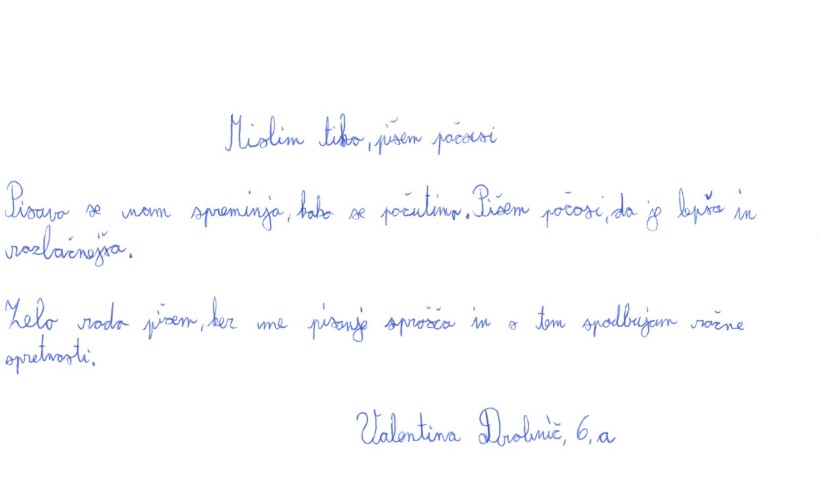 Mislim tiho, pišem počasi
Pisava se nam spreminja, kako se počutimo. Pišem počasi, da je lepša in
razločnejša.
Zelo rada pišem, ker me pisanje sprošča in s tem spodbujam ročne
spretnosti.
Valentina Drobnič, 6. a